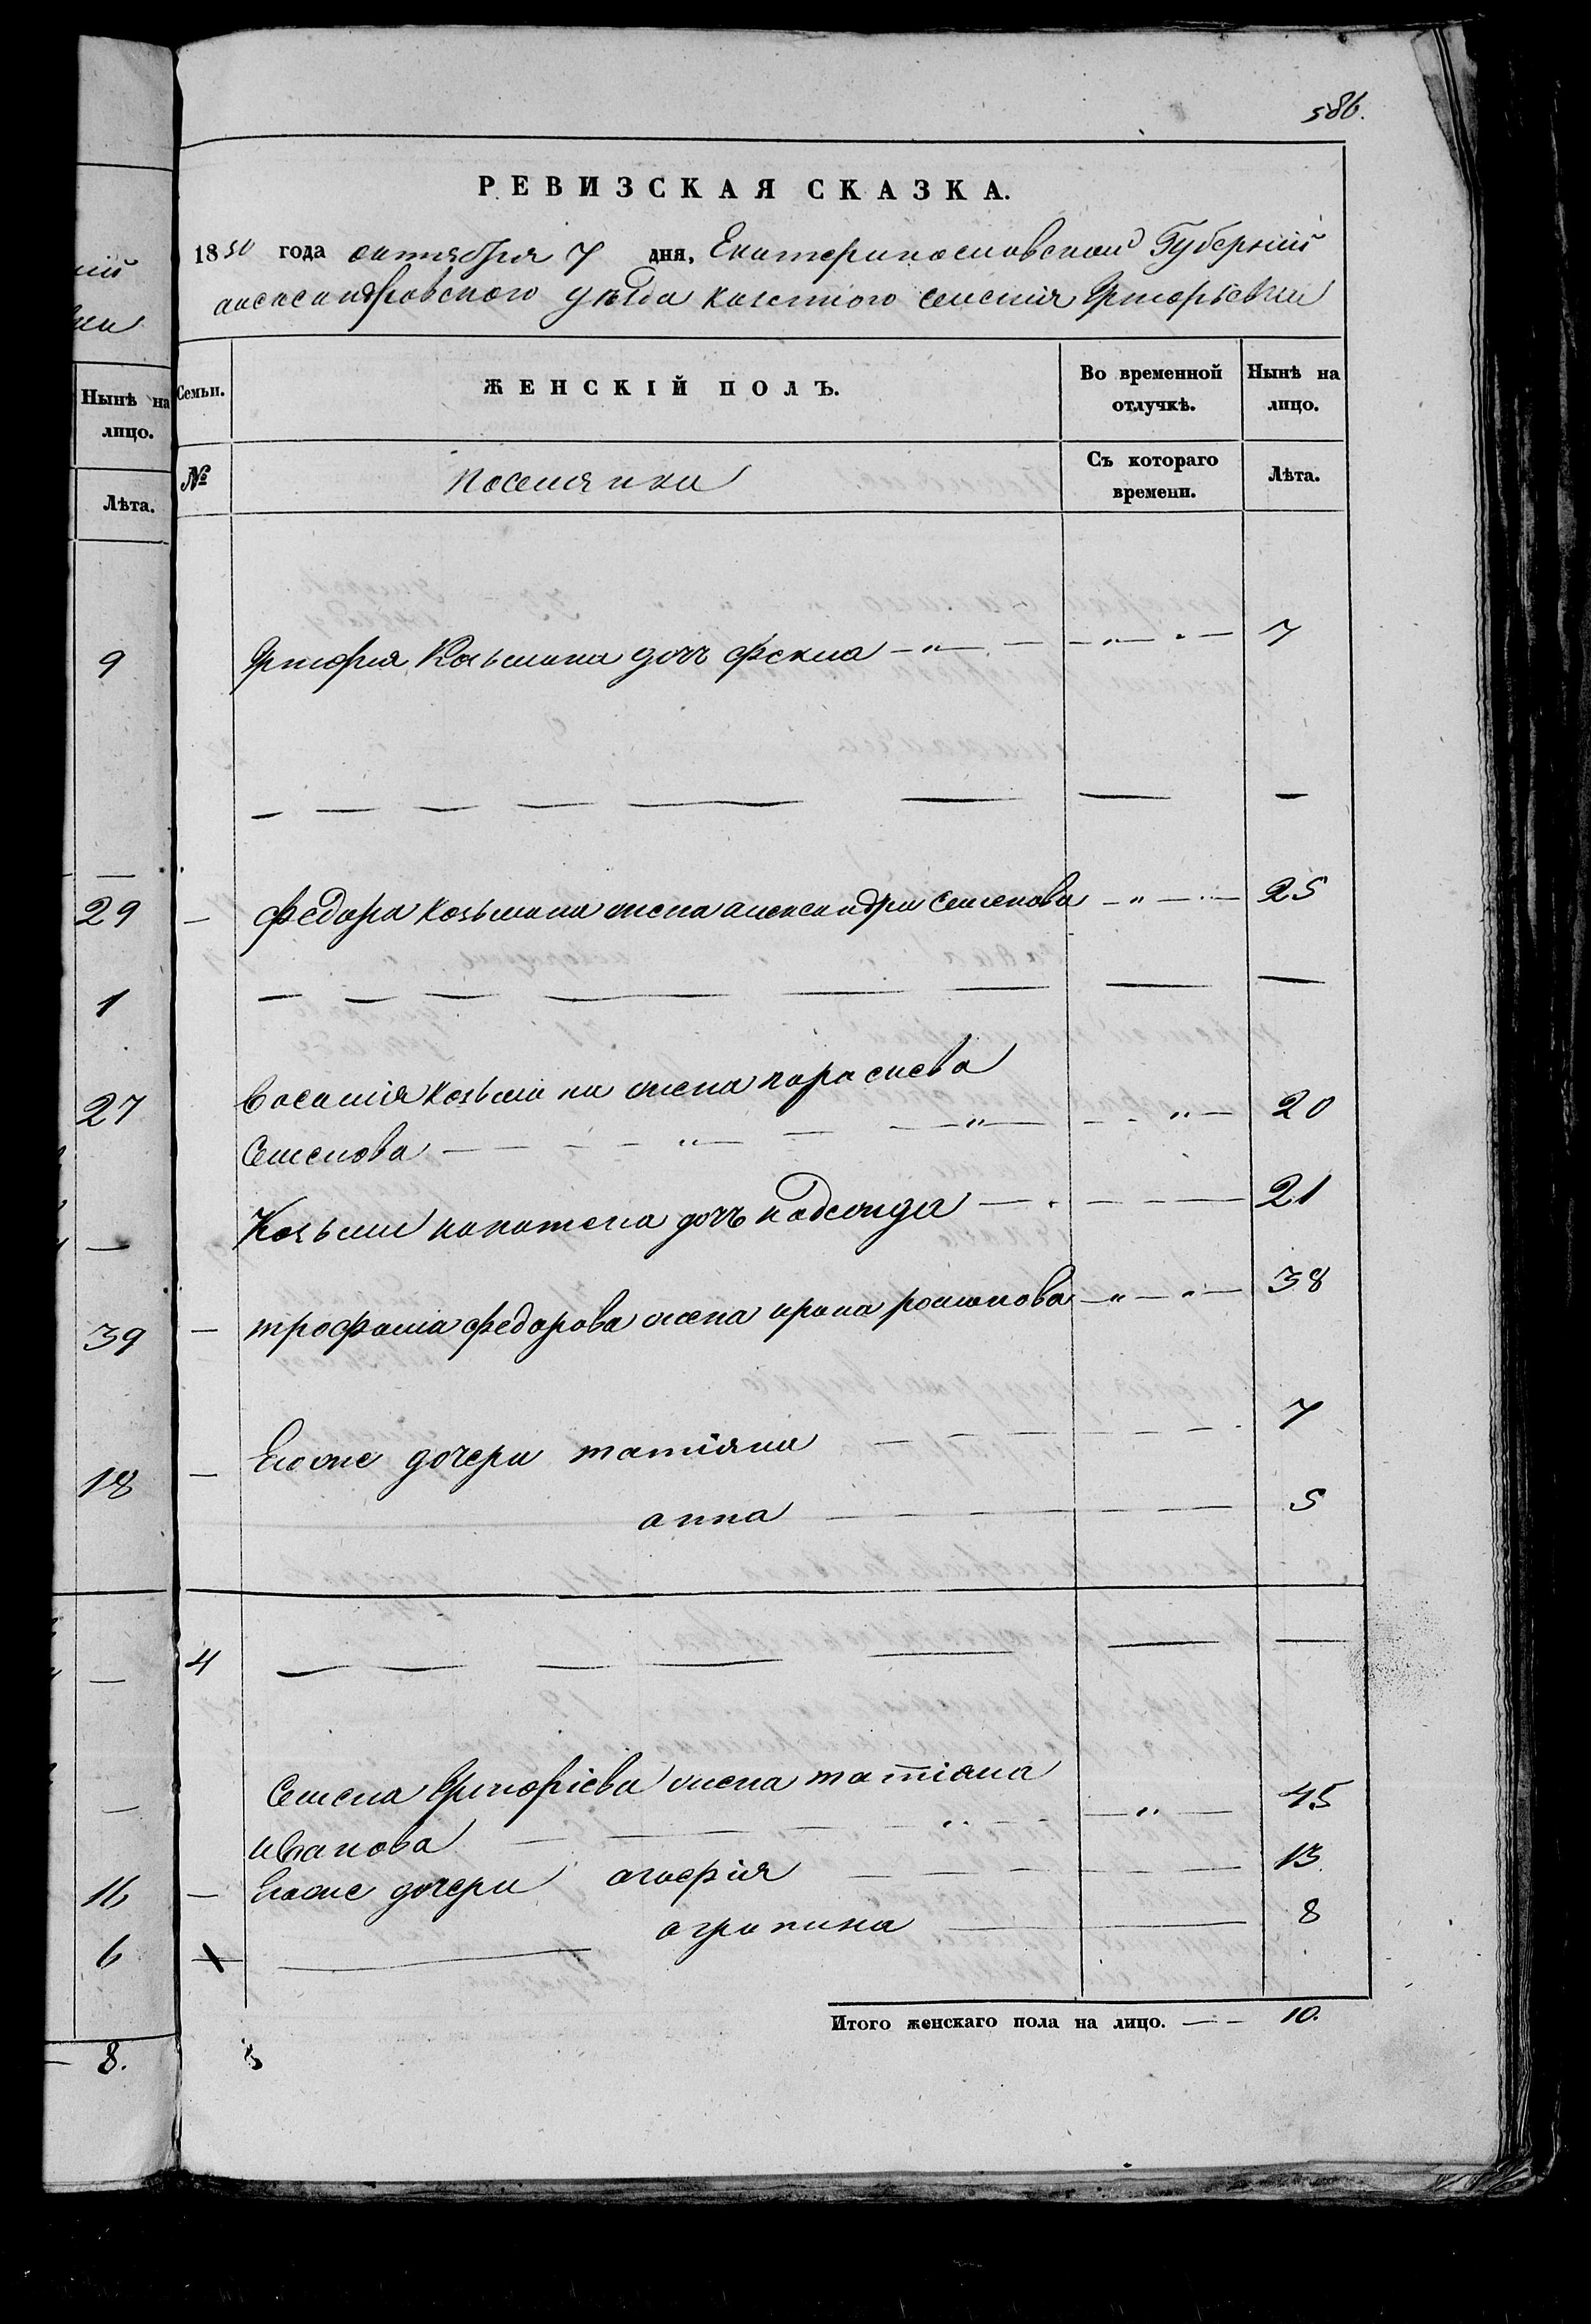 586.
РЕВИЗСКАЯ СКАЗКА.
1850 года октября 7 дня, Екатеринославской Губернии
александровского уезда казенного селения Григорьевки
Нынѣ на лицо.
Лѣта.
9
29
1
27
—
39
18
—
—
16
6
8.
Семьи.
ЖЕНСКІЙ ПОЛЪ.
Во временной отлучкѣ.
Нынѣ на лицо.
№
поселянка
Съ котораго времени.
Лѣта.
Григория Козьмина дочь фекла — 7
федора козьмина жена александра семенова — 25
василия козьмина жена парасиева
Семенова — 20
Козьми дочь надежда — 21
трофима федорова жена ирина романова — 38
Егоже дочери татіяна — 7
анна — 5
4
Семена Григоріева жена татіяна
иванова — 45
Егоже дочери агафія — 13
агрипина — 8
Итого женскаго пола на лицо. — 10.